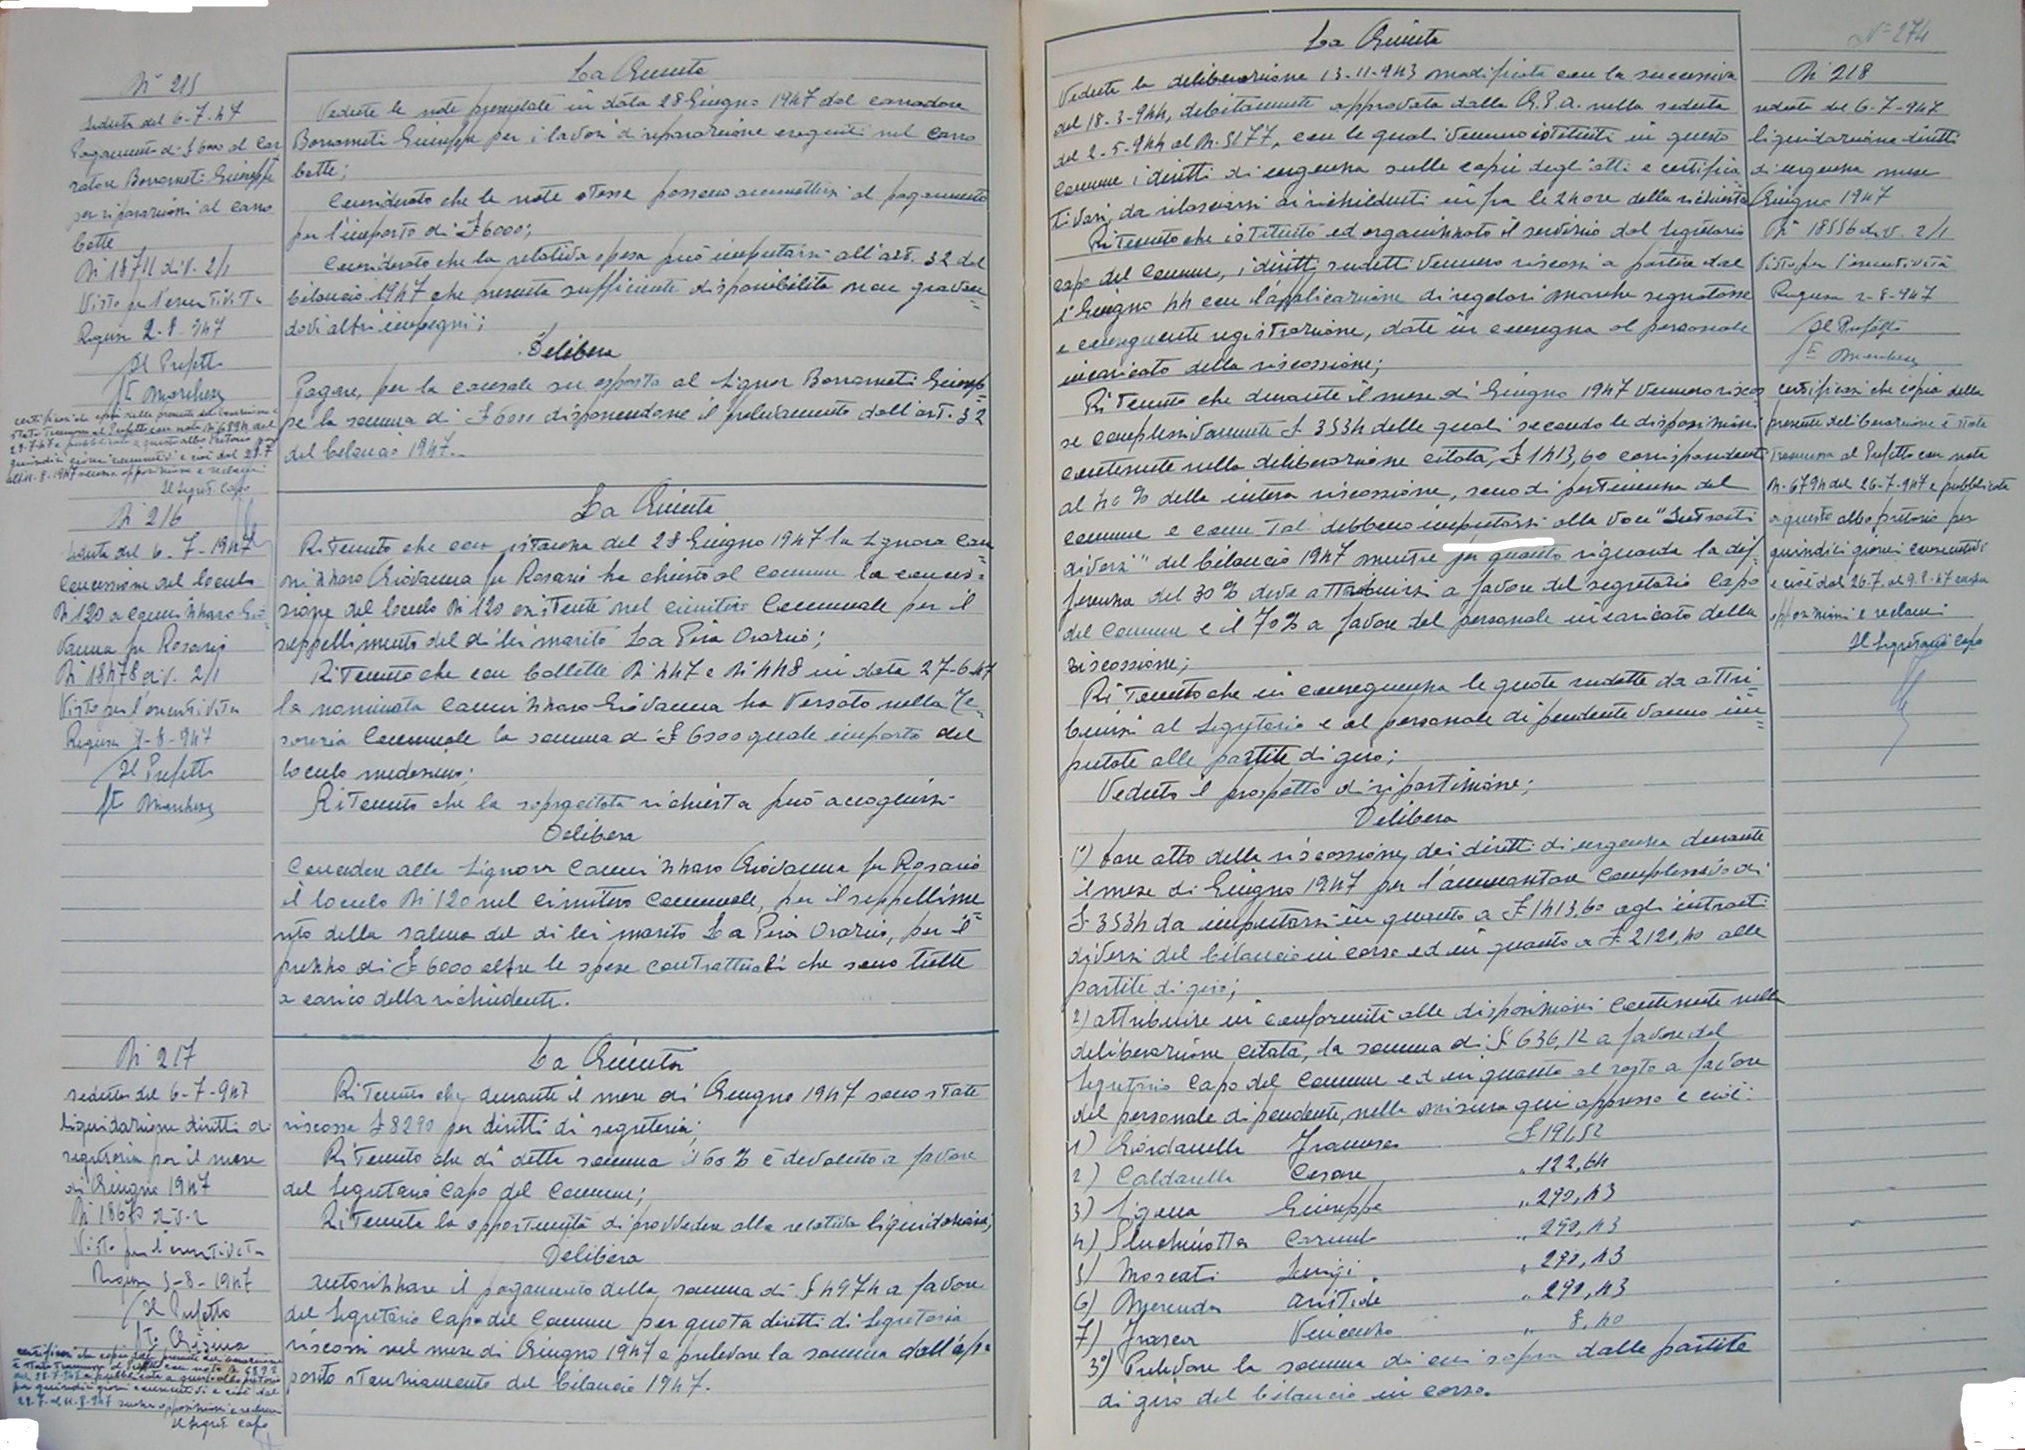 N° 215
Seduta del 6-7-47
Pagamento di £ 6000 al Car
radore Borrometi Giuseppe
per riparazioni al carro
botte
N° 18711 div. 2/1
Visto per l'esecutività
Ragusa 2-8-947
Il Prefetto
ft Marchese
certificasi che copia della presente deliberazione è
stata trasmessa al Prefetto con nota N° 6894 del
28-7-47 e pubblicata a questo albo Pretorio per
quindici giorni consecutivi e cioè dal 28-7
all'11-8-1947 senza opposizioni e reclami
Il Segret. Capo
La Giunta
Vedute le note presentate in data 28 Giugno 1947 dal carradore
Borrometi Giuseppe per i lavori di riparazione eseguiti nel carro
botte;
Considerato che le note stesse possono ammettersi al pagamento
per l'importo di £ 6000;
Considerato che la relativa spesa può imputarsi all'art. 32 del
bilancio 1947 che presenta sufficiente disponibilità non gravan=
dovi altri impegni;
Delibera
Pagare, per la causale su esposta al Signor Borrometi Giusep=
pe la somma di £ 6000 disponendone il prelevamento dall'art. 32
del bilancio 1947.
N° 216
Seduta del 6-7-1947
Concessione del loculo
N° 120 a Cannizzaro Gio=
vanna fu Rosario
N° 18478 div. 2/1
Visto per l'esecutività
Ragusa -8-947
Il Prefetto
ft Marchese
La Giunta
Ritenuto che con istanza del 28 Giugno 1947 la Signora Can
nizzaro Giovanna fu Rosario ha chiesto al Comune la conces=
sione del loculo N° 120 esistente nel cimitero Comunale per il
seppellimento del di lei marito La Pira Orazio;
Ritenuto che con bollette N° 447 e N° 448 in data 27-6-47
la nominata Cannizzaro Giovanna ha versato nella Te=
soreria Comunale la somma di £ 6000 quale importo del
loculo medesimo;
Ritenuto che la sopracitata richiesta può accogliersi
Delibera
Concedere alla Signora Cannizzaro Giovanna fu Rosario
il loculo N° 120 nel cimitero Comunale, per il seppellime
nto della salma del di lei marito La Pira Orazio, per il
prezzo di £ 6000 oltre le spese contrattuali che sono tutte
a carico della richiedente.
N° 217
seduta del 6-7-947
liquidazione diritti di
segreteria per il mese
di Giugno 1947
N° 18670 div. 2
Visto per l'esecutività
Ragusa 5-8-1947
Il Prefetto
certificasi che copia della presente deliberazione
è stata trasmessa al Prefetto con nota N° 6892
del 28-7-947 e pubblicata a questo albo pretorio
per quindici giorni consecutivi e cioè dal
28-7- al 11-8-947 senza opposizioni e reclami
Il Segret. Capo
La Giunta
Ritenuto che durante il mese di Giugno 1947 sono state
riscosse £ 8290 per diritti di segreteria;
Ritenuto che di detta somma il 60 % è devoluto a favore
del Segretario Capo del Comune;
Ritenuta la opportunità di provvedere alla relativa liquidazione;
Delibera
Autorizzare il pagamento della somma di £ 4974 a favore
del Segretario Capo del Comune per quota diritti di Segreteria
riscossi nel mese di Giugno 1947 e prelevare la somma dall'ap=
posito stanziamento del bilancio 1947.
N° 274
La Giunta
Veduta la deliberazione 13-11-943 modificata con la successiva
del 18-3-944, debitamente approvata dalla G.P.A. nella seduta
del 2-5-944 al N. 5177, con le quali vennero istituiti in questo
Comune i diritti di urgenza sulle copie degli atti e certifica
ti vari, da rilasciarsi ai richiedenti in fra le 24 ore della richiesta
Ritenuto che istituito ed organizzato il servizio dal Segretario
capo del Comune, i diritti sudetti vennero riscossi a partire dal
1° Giugno 44 con l'applicazione di regolari marche segnatasse
e conseguente registrazione, date in consegna al personale
incaricato della riscossione;
Ritenuto che durante il mese di Giugno 1947 vennero riscos
se complessivamente £ 3534 delle quali secondo le disposizioni
contenute nella deliberazione citata, £ 1413,60 corrispondenti
al 40 % della intera riscossione, sono di pertinenza del
Comune e come tali debbono imputarsi alla voce "Introiti
diversi" del bilancio 1947 mentre per quanto riguarda la dif=
ferenza del 30 % deve attribuirsi a favore del segretario Capo
del Comune e il 70 % a favore del personale incaricato della
riscossione;
Ritenuto che in conseguenza le quote sudette da attri
buirsi al Segretario e al personale dipendente vanno im=
putate alle partite di giro;
Veduto il prospetto di ripartizione;
Delibera
1°) Fare atto della riscossione dei diritti di urgenza durante
il mese di Giugno 1947 per l'ammontare complessivo di
£ 3534 da imputarsi in quanto a £ 1413,60 agli introiti
diversi del bilancio in corso ed in quanto a £ 2120,40 alle
partite di giro;
2) attribuire in conformità alle disposizioni contenute nella
deliberazione citata, la somma di £ 636,12 a favore del
Segretario Capo del Comune ed in quanto al resto a favore
del personale dipendente, nella misura qui appresso e cioè:
1) Giordanella Francesco £ 191,52
2) Caldarella Cesare " 122,64
3) Ligana Giuseppe " 290,43
4) Pluchinotta Carmelo " 290,43
5) Moscati Luigi " 290,43
6) Merenda Aristide " 290,43
7) Frasca Vincenzo " 8,40
3°) Prelevare la somma di cui sopra dalle partite
di giro del bilancio in corso.
N° 218
seduta del 6-7-947
liquidazione diritti
di urgenza mese
Giugno 1947
N° 18556 div. 2/1
Visto per l'esecutività
Ragusa 2-8-947
Il Prefetto
ft Marchese
certificasi che copia della
presente deliberazione è stata
trasmessa al Prefetto con nota
N. 6794 del 26-7-947 e pubblicata
a questo albo pretorio per
quindici giorni consecutivi
e cioè dal 26.7. al 9.8.47 senza
opposizioni e reclami
Il Segretario Capo